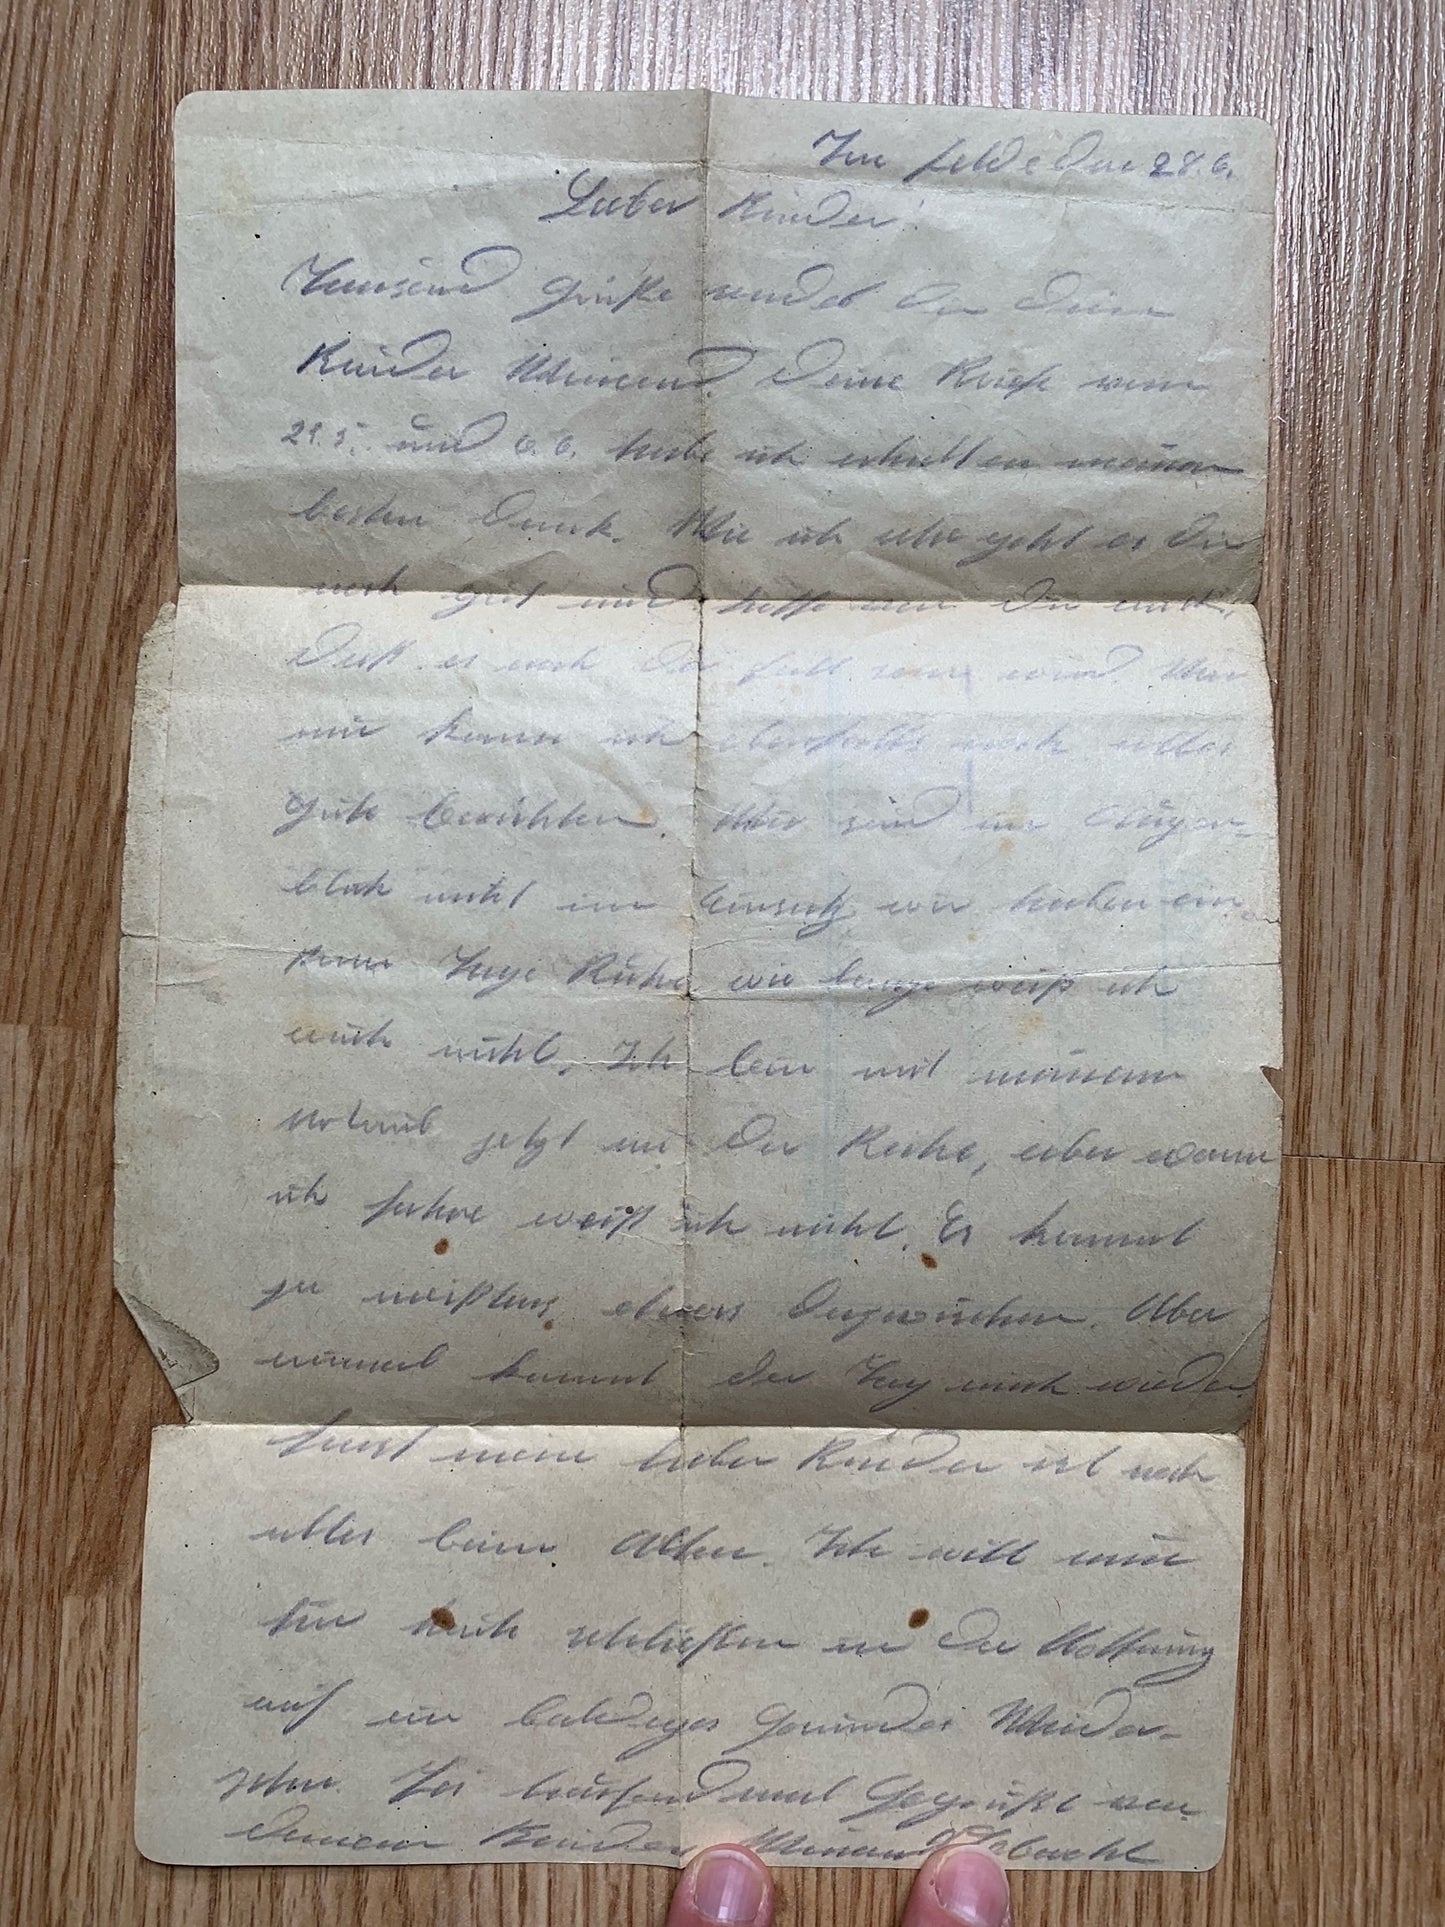 Im Felde den 28.6.
Lieber Bruder!
Tausend Grüße sendet dir dein
Bruder Wienand. Deine Briefe vom
29.5. und 6.6. habe ich erhalten meinen
besten Dank. Wie ich sehe geht es dir
noch gut und hoffe von dir auch,
daß es noch der Fall sein wird. Von
mir kann ich ebenfalls noch alles
gute berichten. Wir sind im Augen-
blick nicht im Einsatz, wir haben ein
paar Tage Ruhe, wie lange weiß ich
auch nicht. Ich bin mit meinem
Urlaub jetzt an der Reihe, aber wann
ich fahre weiß ich nicht. Es kommt
ja meistens etwas dazwischen. Aber
einmal kommt der Tag auch wieder.
Sonst mein lieber Bruder ist noch
alles beim Alten. Ich will nun
für heute schließen in der Hoffnung
auf ein baldiges gesundes Wieder-
sehn. Sei tausend mal Gegrüßt von
deinem Bruder Wienand